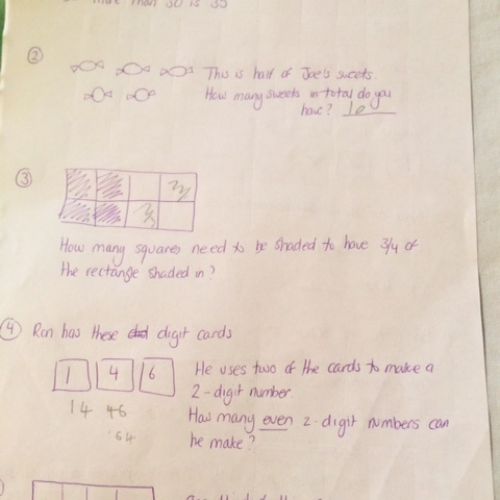 more than 30 is 35
② This is half of Joe's sweets.
How many sweets in total do you
have? 10
③
How many squares need to be shaded to have 3/4 of
the rectangle shaded in?
④ Ron has these digit cards
1 4 6 He uses two of the cards to make a
2-digit number.
14 46 How many even 2-digit numbers can
64 he make?